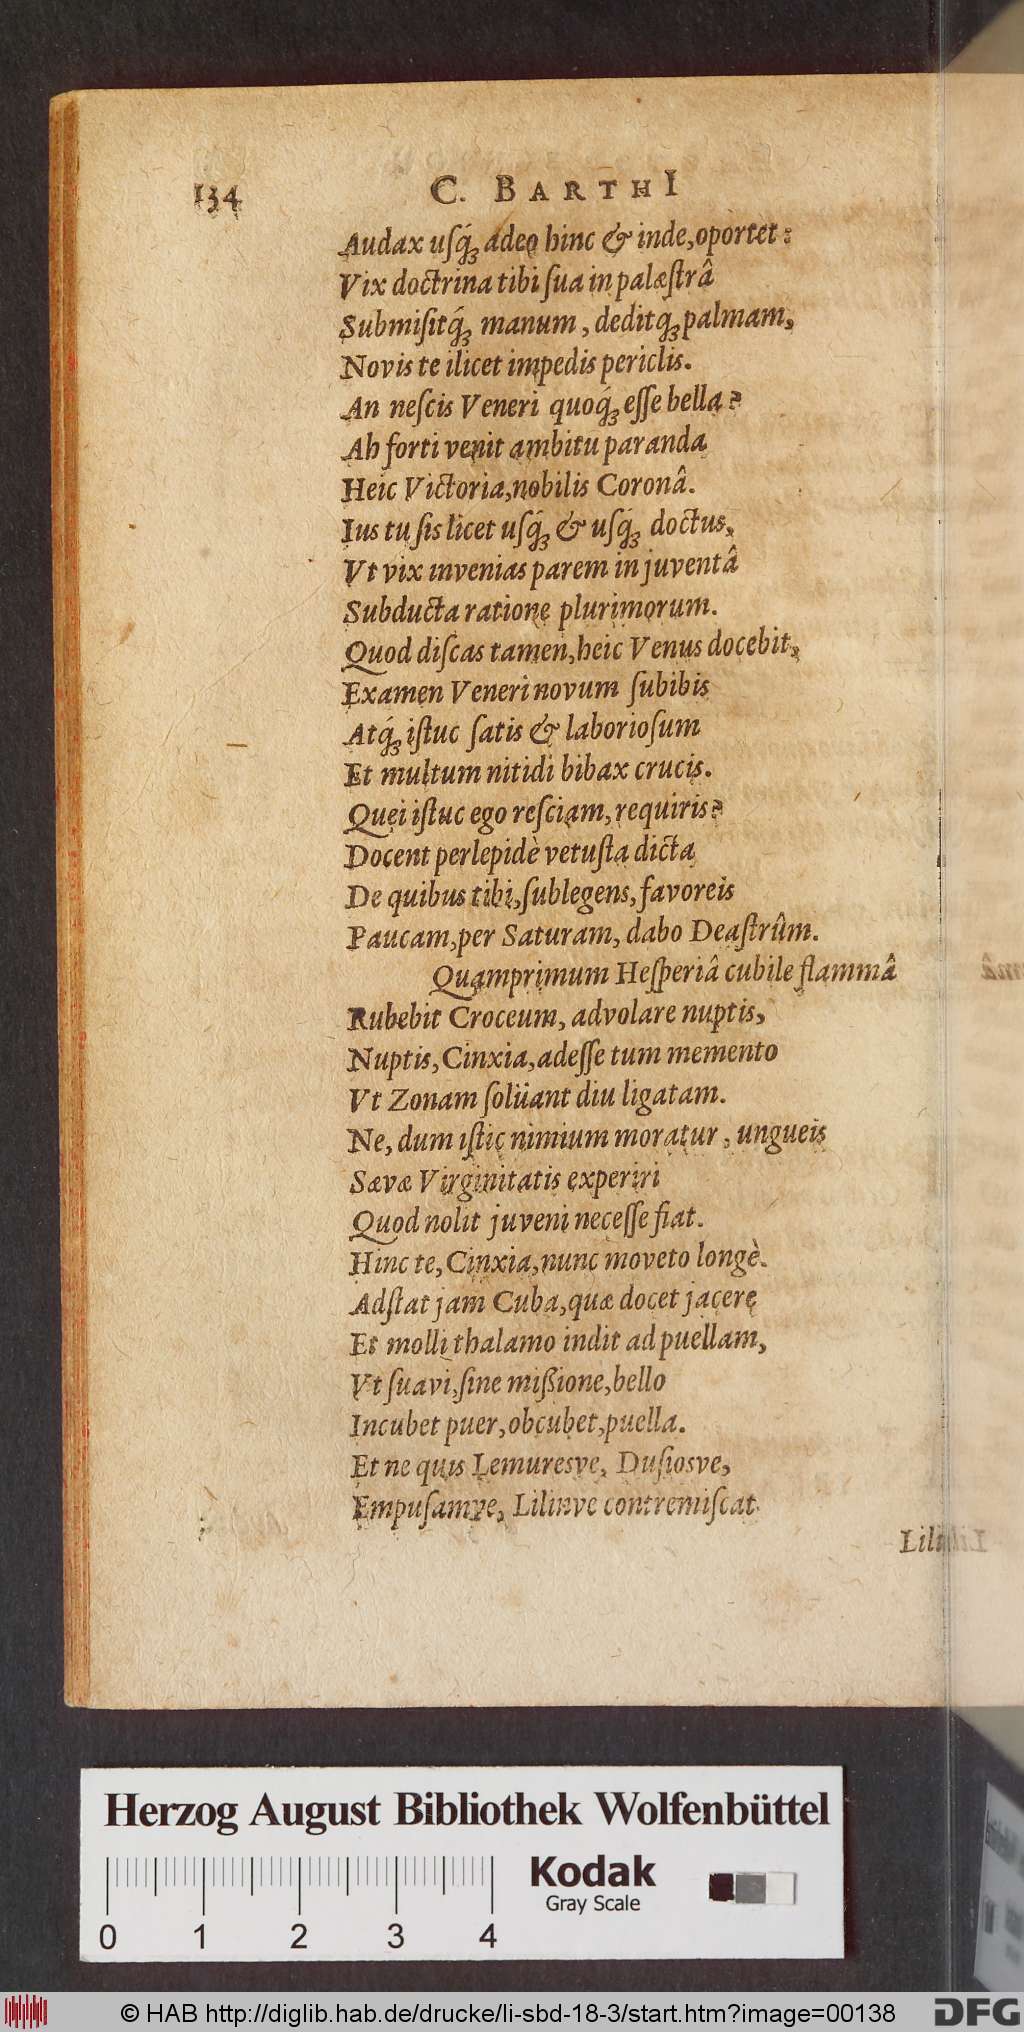 134 C. BARTHI
Audax uſq́; adeo hinc & inde, oportet:
Vix doctrina tibi ſua in palæſtrâ
Submiſitq́; manum, deditq; palmam,
Novis te ilicet impedis periclis.
An neſcis Veneri quoq́; eſſe bella?
Ab forti venit ambitu paranda
Heic Victoria, nobilis Coronâ.
Ius tu ſis licet uſq́; & uſq́; doctus,
Vt vix invenias parem in juventâ
Subducta ratione plurimorum.
Quod diſcas tamen, heic Venus docebit,
Examen Veneri novum ſubibis
Atq́; iſtuc ſatis & laborioſum
Et multum nitidi bibax crucis.
Quei iſtuc ego reſciam, requiris?
Docent perlepidè vetuſta dicta
De quibus tibi, ſublegens, favoreis
Paucam, per Saturam, dabo Deaſtrûm.
Quamprimum Heſperiâ cubile flammâ
Rubebit Croceum, advolare nuptis,
Nuptis, Cinxia, adeſſe tum memento
Vt Zonam ſolüant diu ligatam.
Ne, dum iſtic nimium moratur, ungueis
Sævæ Virginitatis experiri
Quod nolit juveni neceſſe fiat.
Hinc te, Cinxia, nunc moveto longè.
Adſtat jam Cuba, quæ docet jacere
Et molli thalamo indit ad puellam,
Vt ſuavi, ſine mißione, bello
Incubet puer, obcubet, puella.
Et ne quis Lemuresve, Duſiosve,
Empuſamve, Lilinve contremiſcat
Herzog August Bibliothek Wolfenbüttel
Kodak
Gray Scale
0 1 2 3 4
© HAB http://diglib.hab.de/drucke/li-sbd-18-3/start.htm?image=00138 DFG